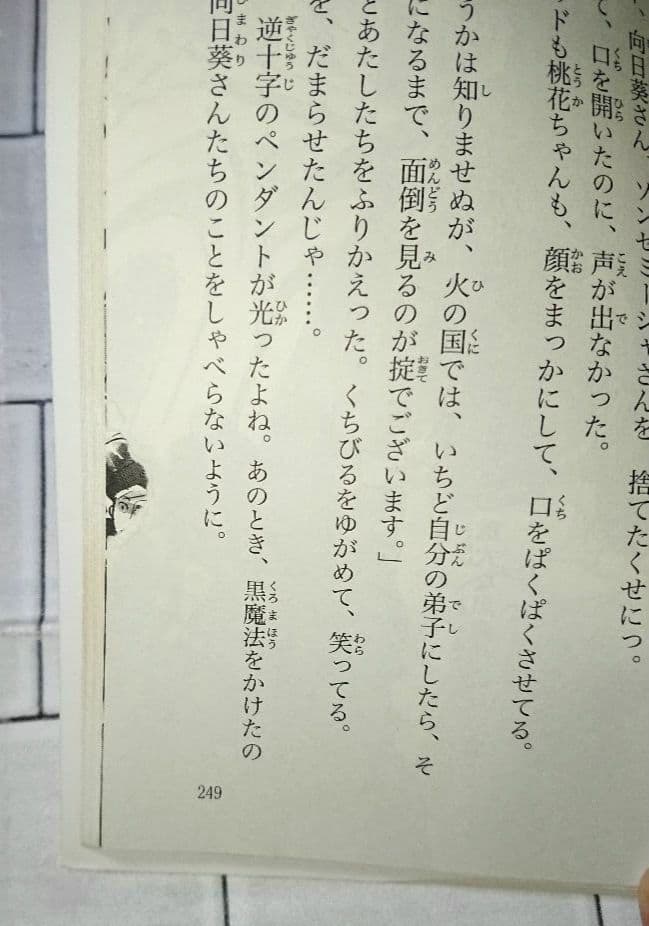 、向日葵さん、ゾンビミーシャさんを、捨てたくせにっ。
て、口を開いたのに、声が出なかった。
ッドも桃花ちゃんも、顔をまっかにして、口をぱくぱくさせてる。
うかは知りませぬが、火の国では、いちど自分の弟子にしたら、そ
になるまで、面倒を見るのが掟でございます。」
とあたしたちをふりかえった。くちびるをゆがめて、笑ってる。
を、だまらせたんじゃ……。
逆十字のペンダントが光ったよね。あのとき、黒魔法をかけたの
向日葵さんたちのことをしゃべらないように。
249